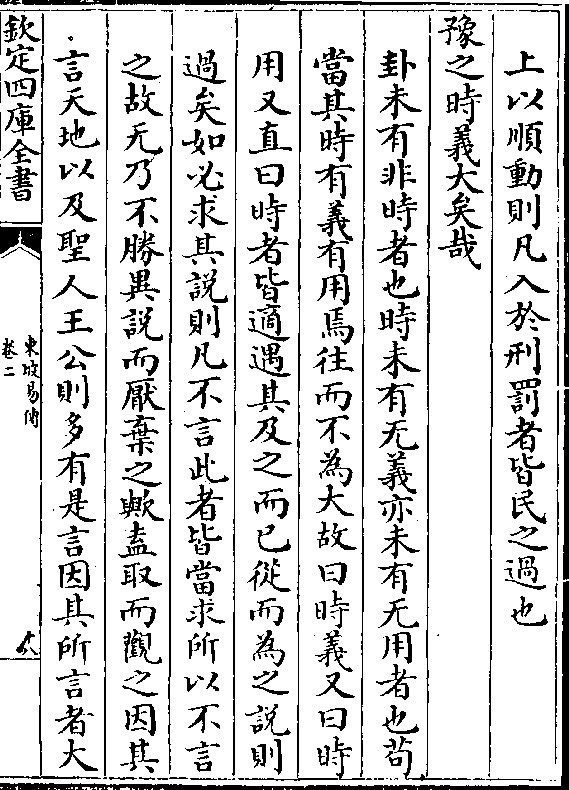 上以順動則凡入於刑罰者皆民之過也
豫之時義大矣哉
卦未有非時者也時未有无義亦未有无用者也苟
當其時有義有用焉往而不為大故曰時義又曰時
用又直曰時者皆適遇其及之而已從而為之說則
過矣如必求其說則凡不言此者皆當求所以不言
之故无乃不勝異說而厭棄之歟盍取而觀之因其
言天地以及聖人王公則多有是言因其所言者大
欽定四庫全書
東坡易傳
卷二